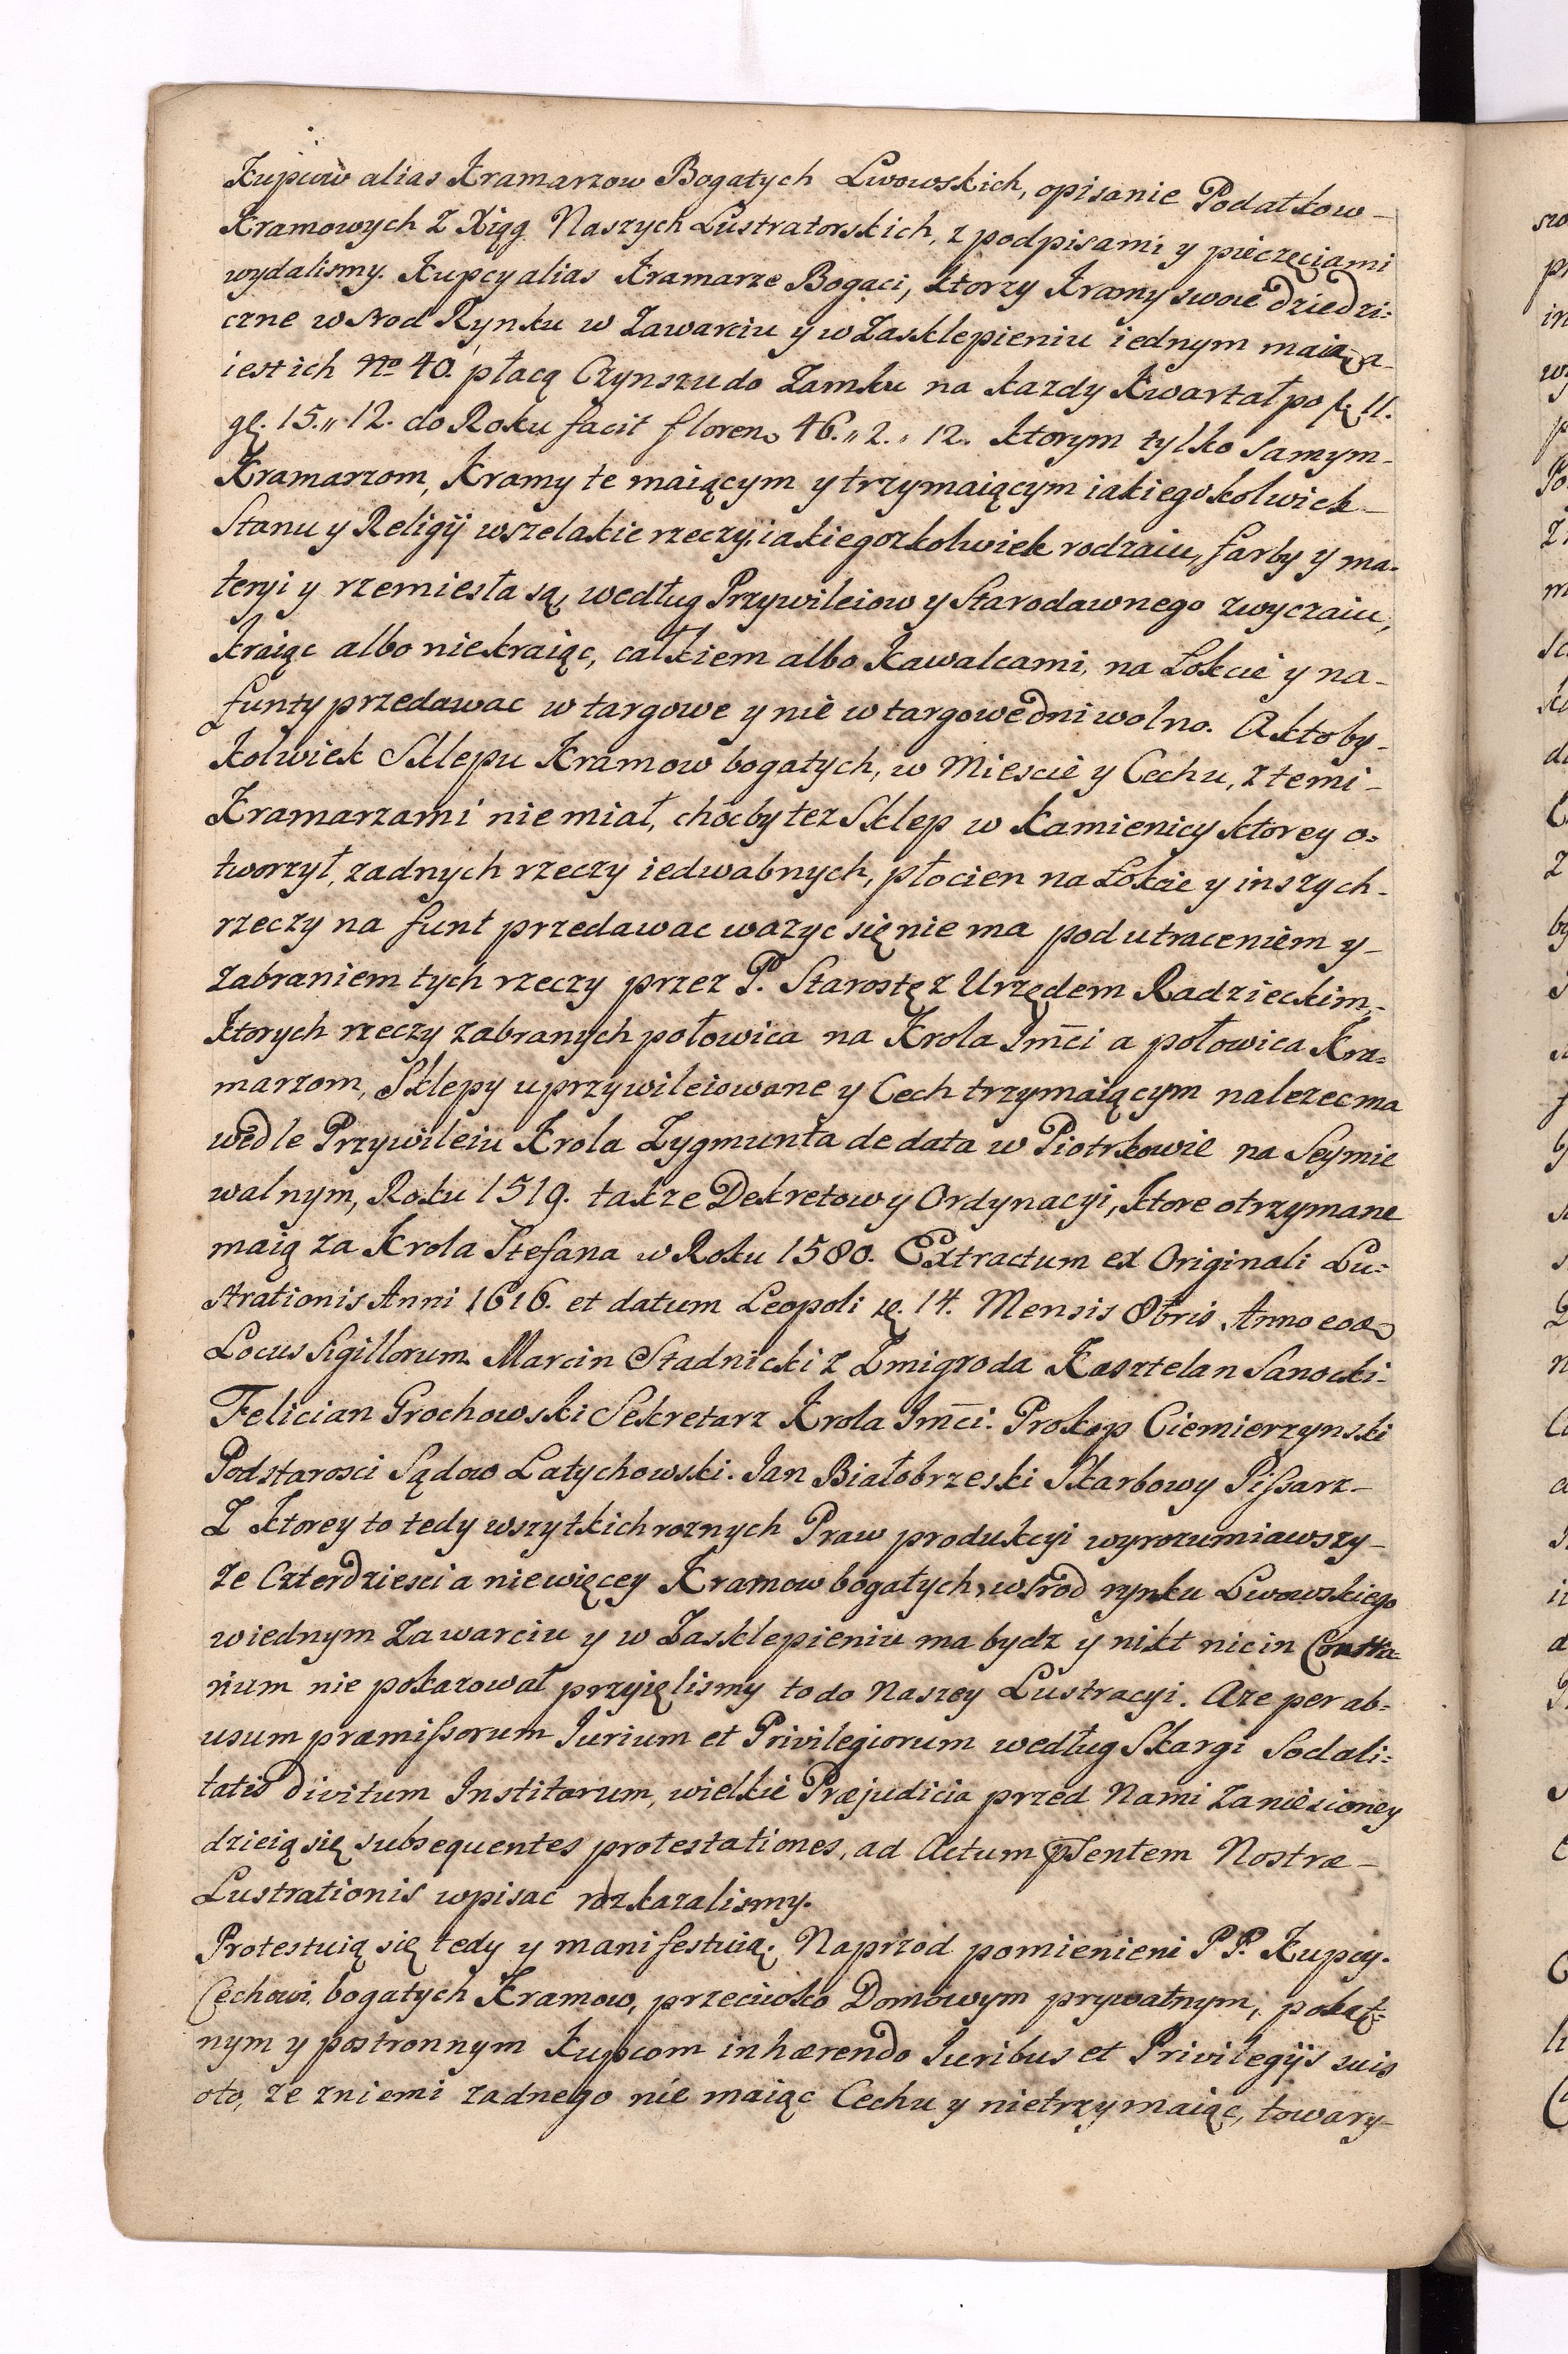 Kupców alias Kramarzow Bogatych Lwowskich, opisanie Podatkow-
Kramowych z Xiąg Naszych Lustratorskich, z podpisami y pieczęciami
wydalismy. Kupcy alias Kramarze Bogaci, ktorzy Kramy swoie dziedzi:
czne wsrod Rynku w Zawarciu y w Zasklepieniu iednym maią, a-
iest ich No 40. płacą Czynszu do Zamku na kazdy Kwartał po fl. 11.
gl. 15.,, 12. do Roku facit floren. 46.,, 2.,, 12. ktorym tylko samym-
Kramarzom, Kramy te maiącym y trzymaiącym iakiegokolwiek-
Stanu y Religij wszelakie rzeczy, iakiegozkolwiek rodzaiu, farby y ma-
teryi y rzemiesła są, według Przywileiow y Starodawnego zwyczaiu,
kraiąc albo niekraiąc, całkiem albo Kawalcami, na Łokcie y na-
funty przedawac w targowe y nie w targowe dni wolno. A ktoby-
kolwiek Sklepu Kramow bogatych, w Miescie y Cechu, z temi-
Kramarzami nie miał, choćby tez Sklep w Kamienicy ktorey o=
tworzył, zadnych rzeczy iedwabnych, płocien na Łokcie y inszych-
rzeczy na funt przedawac wazyc się nie ma pod utraceniem y-
zabraniem tych rzeczy przez P. Starostę z Urzędem Radzieckim,-
ktorych rzeczy zabranych połowica na Krola Jmći a połowica Kra-
marzom, Sklepy uprzywileiowane y Cech trzymaiącym nalezec ma
wedle Przywileiu Krola Zygmunta de data w Piotrkowie na Seymie
walnym, Roku 1519. takze Dekretow y Ordynacyi, ktore otrzymane
maią za Krola Stefana w Roku 1580. Extractum ex Originali Lu=
strationis Anni 1616. et datum Leopoli d. 14. Mensis 8bris Anno eod.
Locus Sigillorum. Marcin Stadnicki z Zmigroda Kasztelan Sanocki.
Felician Grochowski Sekretarz Krola Jmći. Prokop Ciemierzynski
Podstarosci Sądow Latychowski. Jan Białobrzeski Skarbowy Pissarz-
Z ktorey to tedy wszytkich roznych Praw produkcyi wyrozumiawszy-
ze Czterdziesci a niewięcey Kramow bogatych, wsrod rynku Lwowskiego
w iednym Zawarciu y w Zasklepieniu ma bydz y nikt nic in Contra-
rium nie pokazował przyięlismy to do Naszey Lustracyi. Aze per ab=
usum præmissorum Iurium et Privilegiorum według Skargi Sodali=
tatis Divitum Institorum, wielkie Præjudicia przed Nami zaniesioney
dzieią się subsequentes protestationes, ad Actum p̄sentem Nostræ-
Lustrationis wpisać rozkazalismy.
Protestuią się tedy y manifestuią. Naprzod pomienieni P P. Kupcy.
Cechowi bogatych Kramow, przeciwko Domowym prywatnym, pokąt=
nym y postronnym Kupcom inhærendo Iuribus et Privilegijs suis
oto, ze zniemi zadnego nie maiąc Cechu y nietrzymaiąc, towary-